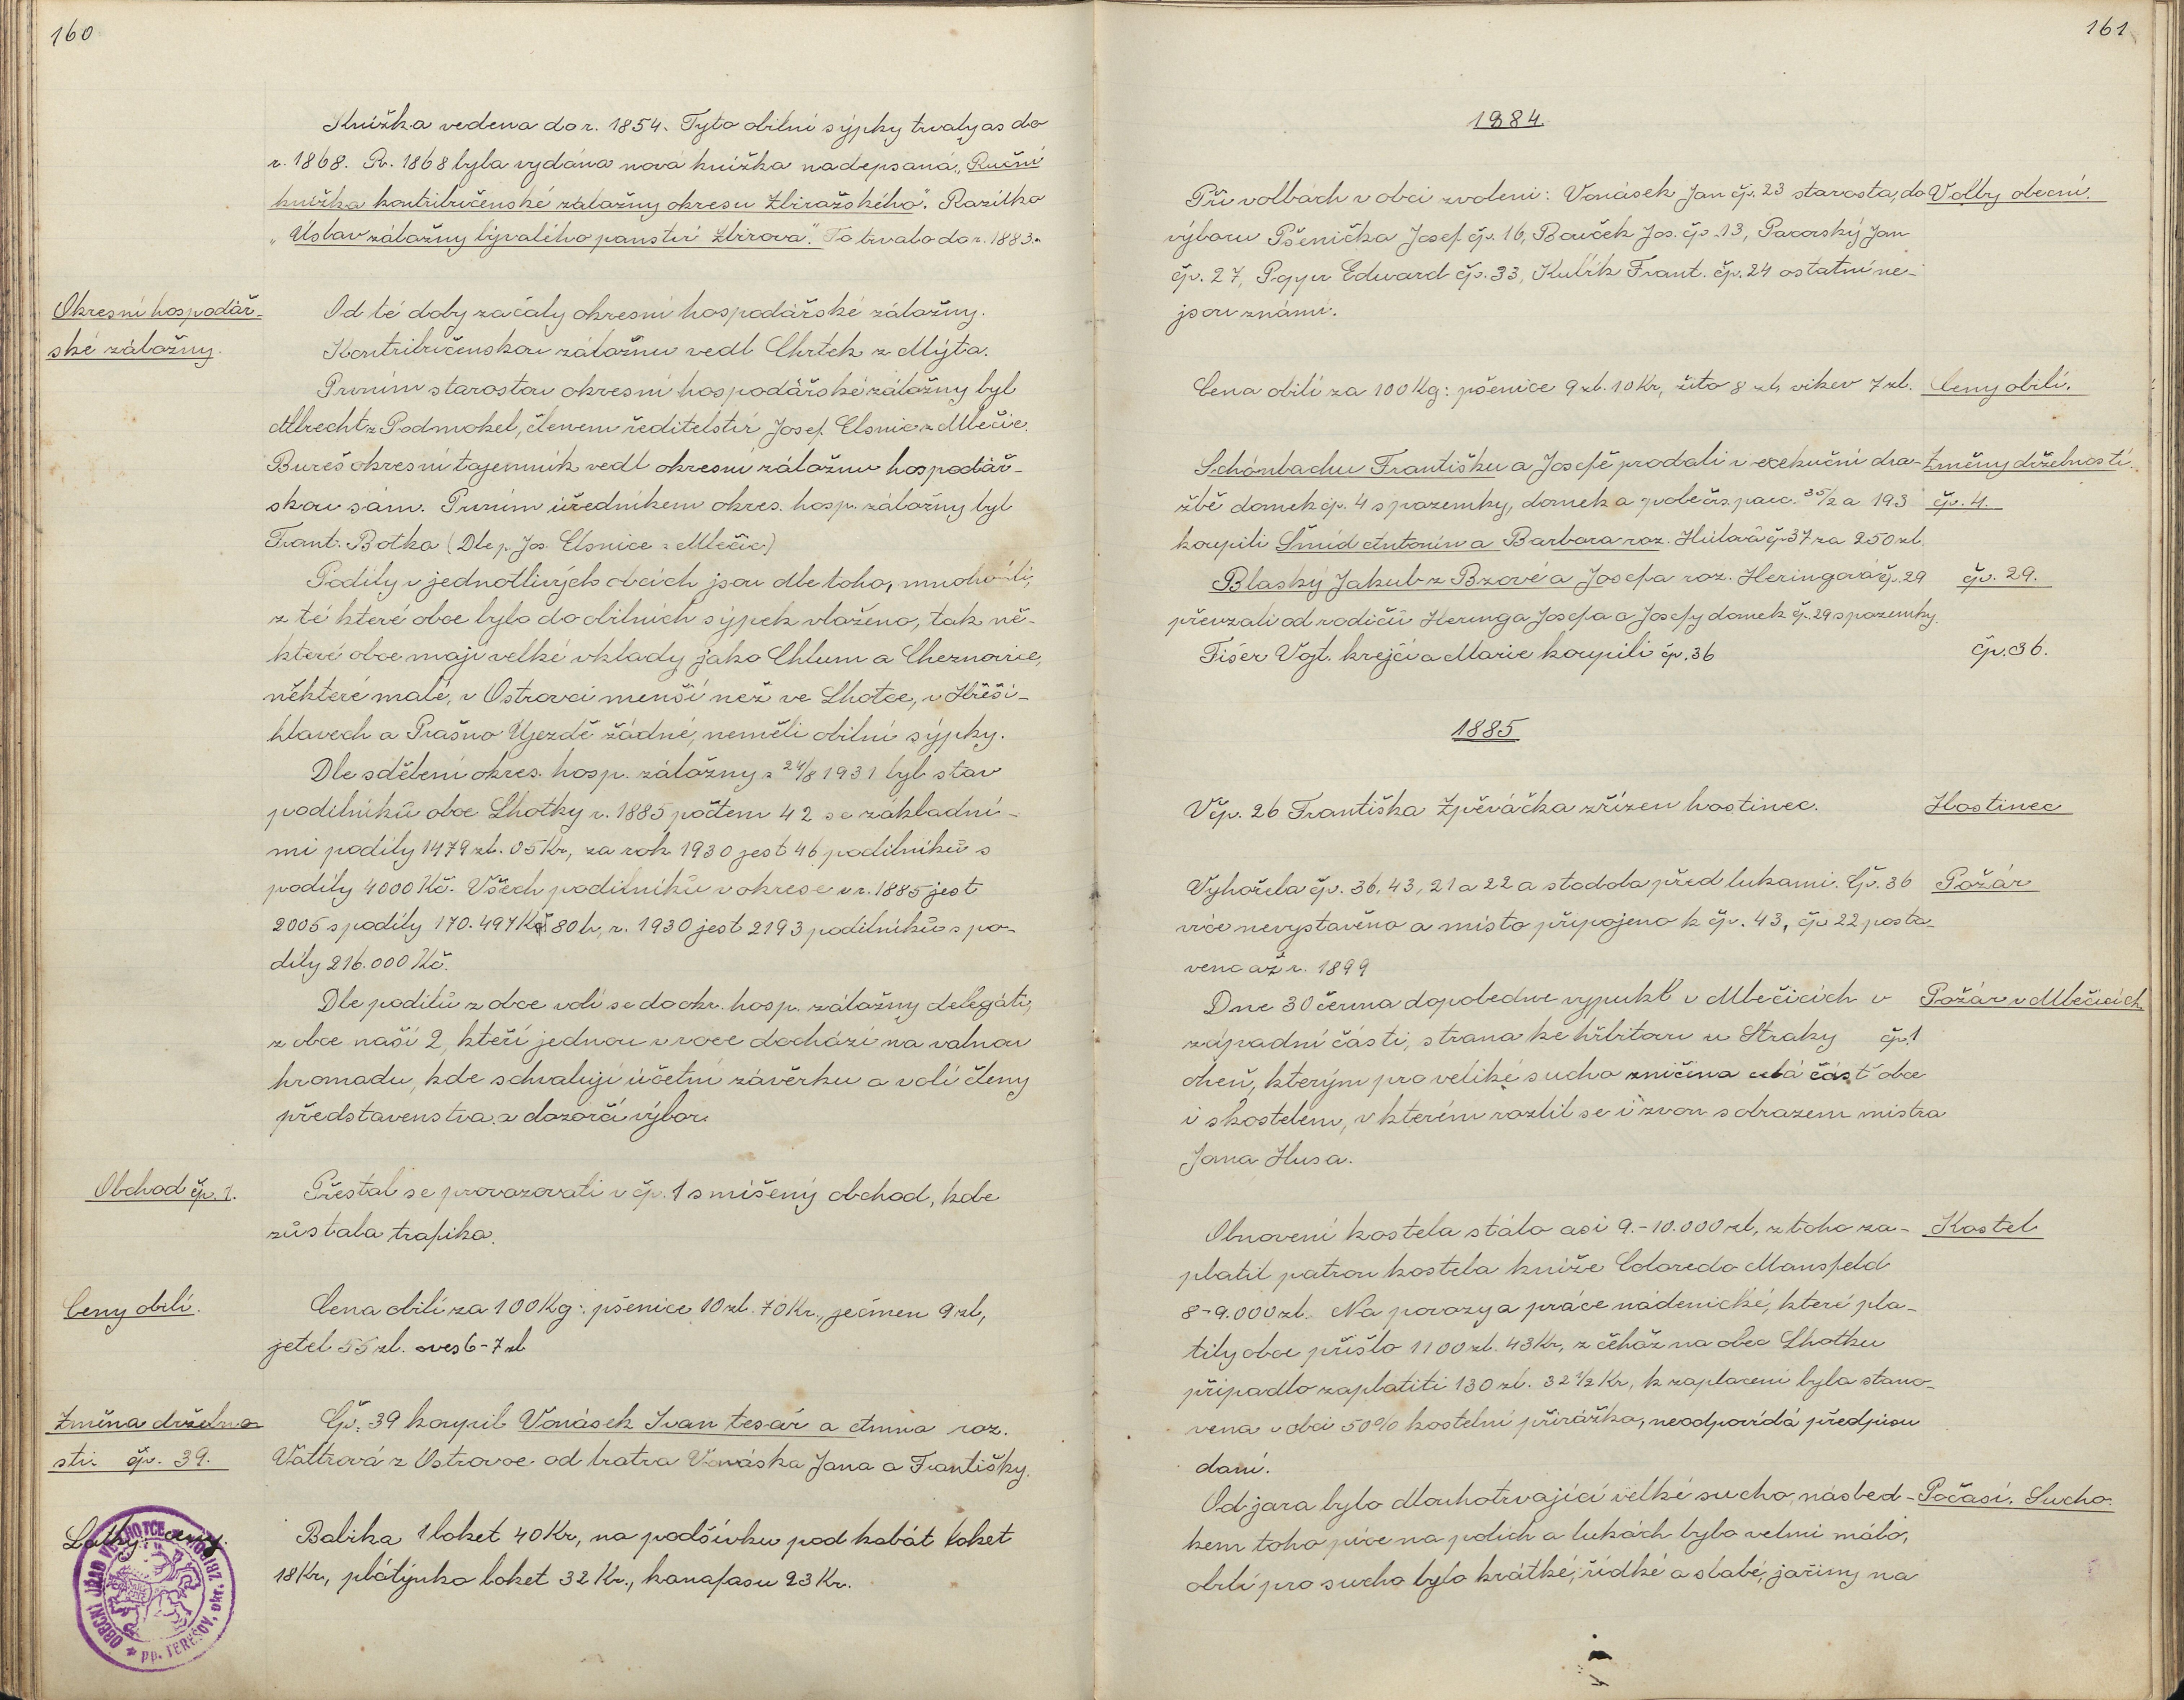 160
Knížka vedena do r. 1854. Tyto obilní sýpky trvaly as do
r. 1868. R. 1868 byla vydána nová knížka nadepsaná „Ruční
knížka kontribučenské záložny okresu Zbirožského“. Razítko
„Ústav záložny bývalého panství Zbirova“. To trvalo do r. 1883.
Okresní hospodář-
ské záložny.
Od té doby začaly okresní hospodářské záložny.
Kontribučenskou záložnu vedl Chrtek z Mýta.
Prvním starostou okresní hospodářské záložny byl
Albrecht z Podmokel, členem ředitelství Josef Elsnic z Mlečic.
Bureš okresní tajemník vedl okresní záložnu hospodář-
skou sám. Prvním úředníkem okres. hosp. záložny byl
Frant. Botka (Dle p. Jos. Elsnice z Mlečic)
Podíly v jednotlivých obcích jsou dle toho, mnoho-li,
z té které obce bylo do obilních sýpek vloženo, tak ně-
které obce mají velké vklady jako Chlum a Chernovice,
některé malé, v Ostrovci menší než ve Lhotce, v Hřeši-
hlavech a Prašno Ujezdě žádné, neměli obilní sýpky.
Dle sdělení okres. hosp. záložny z 24/8 1931 byl stav
podílníků obce Lhotky r. 1885 počtem 42 se základní-
mi podíly 1479 zl. 05 Kr, za rok 1930 jest 46 podílníků s
podíly 4000 Kč. Všech podílníků v okrese v r. 1885 jest
2005 s podíly 170.497 Kč 80 h, r. 1930 jest 2193 podílníků s po-
díly 216.000 Kč.
Dle podílů z obce volí se do okr. hosp. záložny delegáti,
z obce naší 2, kteří jednou v roce dochází na valnou
hromadu, kde schvalují účetní závěrku a volí členy
představenstva a dozorčí výbor.
Obchod čp. 1.
Přestal se provozovati v čp. 1 smíšený obchod, kde
zůstala trafika.
Ceny obilí.
Cena obilí za 100 Kg: pšenice 10 zl. 70 Kr., ječmen 9 zl,
jetel 55 zl. oves 6-7 zl
Změna držebno-
sti čp. 39.
Čp. 39 koupil Vonásek Ivan tesař a Anna roz.
Vattrová z Ostrovce od bratra Vonáska Jana a Františky.
Látky ceny.
Balika 1 loket 40 Kr, na podšívku pod kabát loket
18 Kr, plátýnko loket 32 Kr., kanafasu 23 Kr.
OBECNÍ ÚŘAD VE LHOTCE
pp. TEREŠOV, okr. ZBIROH
161
1884
Při volbách v obci zvoleni: Vonásek Jan čp. 23 starosta, do
Volby obecní.
výboru Pšenička Josef čp. 16, Bouček Jos. čp. 13, Pavorský Jan
čp. 27, Edward čp. 33, Kulík Frant. čp. 24 ostatní ne-
jsou známi.
Cena obilí za 100 Kg: pšenice 9 zl. 10 Kr, žito 8 zl, vikev 7 zl.
Ceny obilí.
Schönbachu Františku a Josefě prodali v exekuční dra-
Změny držebností.
žbě domek čp. 4 s pozemky, domek a pole čís. parc. 35/2 a 193
čp. 4.
koupili Šmíd Antonín a Barbora roz. Hůlová čp 37 za 250 zl.
Blaský Jakub z Bzové a Josefa roz. Heringová čp. 29
čp. 29.
převzali od rodičů Heringa Josefa a Josefy domek č. 29 s pozemky.
Fišer Vojt. krejčí a Marie koupili čp. 36
čp. 36.
1885
V čp. 26 Františka Zpěváčka zřízen hostinec.
Hostinec
Vyhořela čp. 36, 43, 21 a 22 a stodola před lukami. Čp. 36
Požár
více nevystavěno a místo připojeno k čp. 43, čp 22 posta-
veno až r. 1899
Dne 30 června dopoledne vypukl v Mlečicích v
Požár v Mlečicích
západní části, strana ke hřbitovu u Straky čp. 1
oheň, kterým pro veliké sucho zničina celá část obce
i s kostelem, v kterém rozlil se i zvon s obrazem mistra
Jana Husa.
Obnovení kostela stálo asi 9.-10.000 zl, z toho za-
Kostel
platil patron kostela kníže Coloredo Mansfeld
8-9.000 zl. Na povozy a práce nádenické, které pla-
tily obce přišlo 1100 zl. 43 Kr, z čehož na obec Lhotku
připadlo zaplatiti 130 zl. 32 1/2 Kr, k zaplacení byla stano-
vena v obci 50% kostelní přirážka, neodpovídá předpisu
daní.
Od jara bylo dlouhotrvající velké sucho, násled-
Počasí. Sucho.
kem toho píce na polích a lukách bylo velmi málo,
obilí pro sucho bylo krátké, řídké a slabé, jařiny na